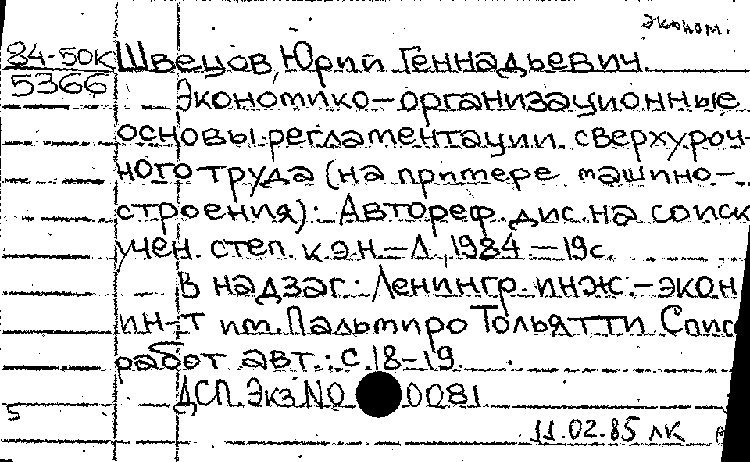 эконом.
84-50К Швецов, Юрий Геннадьевич.
5366
Экономико-организационные
основы регламентации сверхуроч-
ного труда (на примере машино-
строения): Автореф. дис. на соиск
учен. степ. к.э.н. - Л., 1984 - 19с.
В надзаг.: Ленингр. инж.-экон
ин-т им. Пальмиро Тольятти Спис
работ авт.: с. 18-19.
ДСП. Экз. NO 0081
5
11.02.85 лк